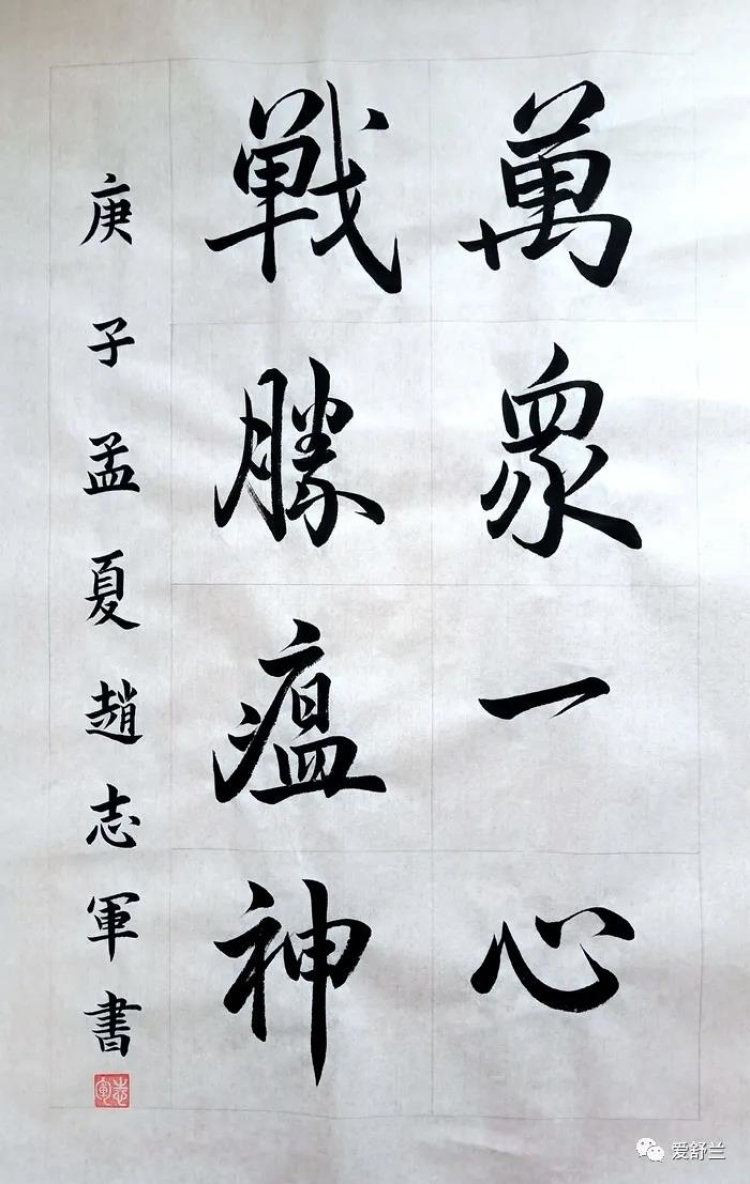 萬眾一心
戰勝瘟神
庚子孟夏趙志軍書
志軍
爱舒兰